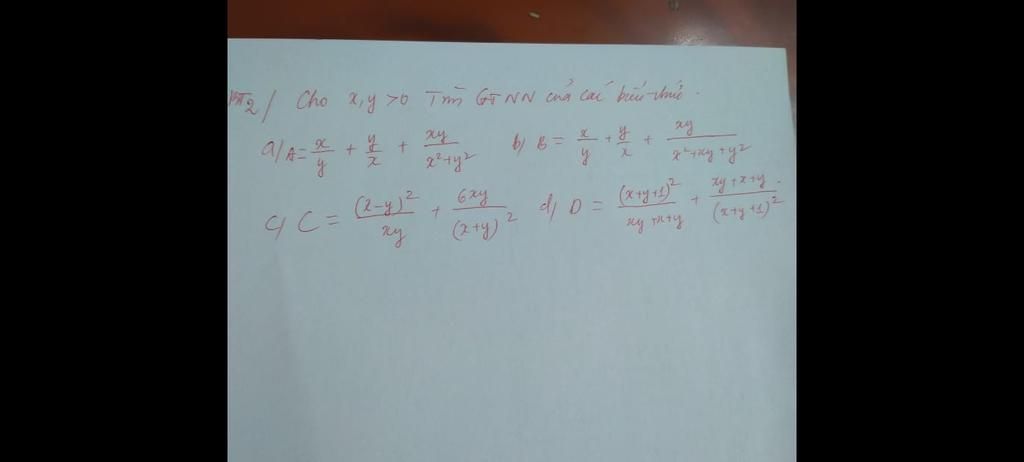 BT2/ Cho x, y > 0 Tìm GTNN của các biểu thức.
a/ A = \frac{x}{y} + \frac{y}{x} + \frac{xy}{x^2+y^2} b/ B = \frac{x}{y} + \frac{y}{x} + \frac{xy}{x^2+xy+y^2}
c/ C = \frac{(x-y)^2}{xy} + \frac{6xy}{(x+y)^2} d/ D = \frac{(x+y+1)^2}{xy+x+y} + \frac{xy+x+y}{(x+y+1)^2}.